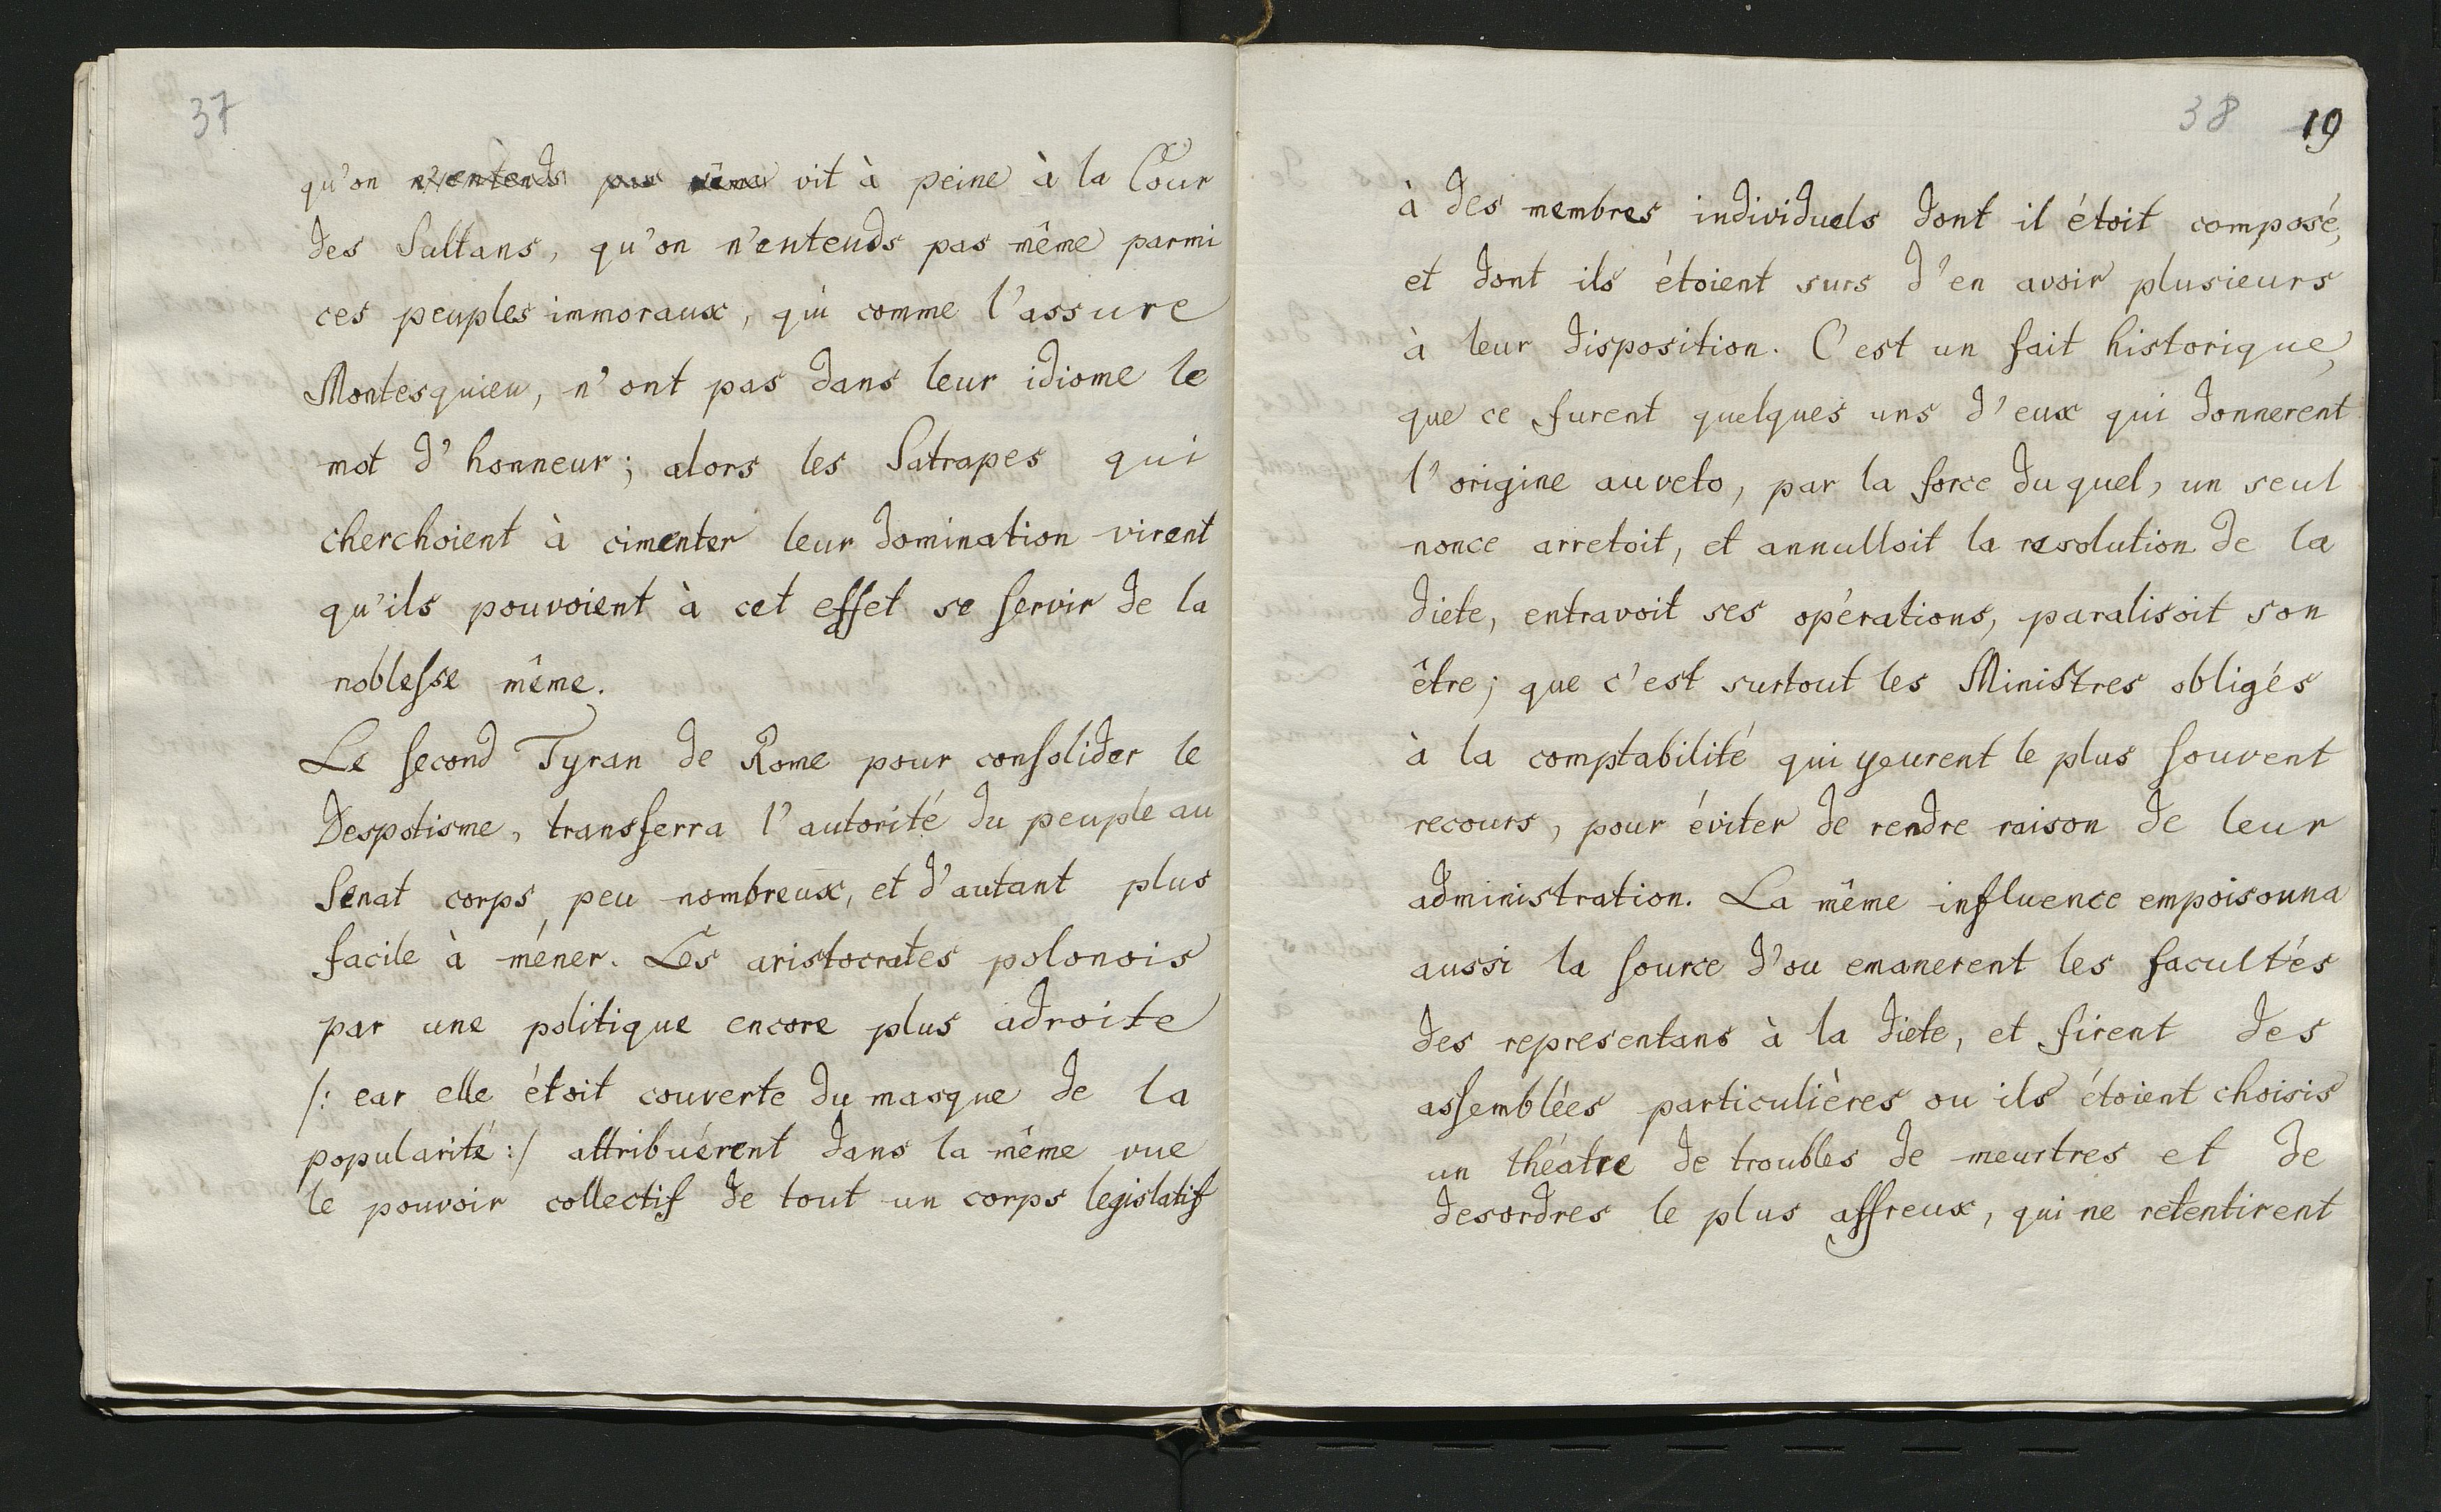 37
qu'on n'entends pas même vit à peine à la Cour
des Sultans, qu'on n'entends pas même parmi
ces peuples immoraux, qui comme l'assure
Montesquieu, n'ont pas dans leur idiome le
mot d'honneur; alors les Satrapes qui
cherchoient à cimenter leur domination virent
qu'ils pouvoient à cet effet se servir de la
noblesse même.
Le second Tyran de Rome pour consolider le
Despotisme, transferra l'autorité du peuple au
Senat corps peu nombreux, et d'autant plus
facile à méner. Les aristocrates polonois
par une politique encore plus adroite
/: car elle étoit couverte du masque de la
popularité :/ attribuérent dans la même vue
le pouvoir collectif de tout un corps legislatif
38 19
à des membres individuels dont il étoit composé,
et dont ils étoient surs d'en avoir plusieurs
à leur disposition. C'est un fait historique,
que ce furent quelques uns d'eux qui donnerent
l'origine au veto, par la force du quel, un seul
nonce arretoit, et annulloit la resolution de la
diete, entravoit ses opérations, paralisoit son
être; que c'est surtout les Ministres obligés
à la comptabilité qui y eurent le plus souvent
recours, pour éviter de rendre raison de leur
administration. La même influence empoisonna
aussi la source d'ou emanerent les facultés
des representans à la diete, et firent des
assemblées particulières ou ils étoient choisis
un théatre de troubles de meurtres et de
desordres le plus affreux, qui ne retentirent